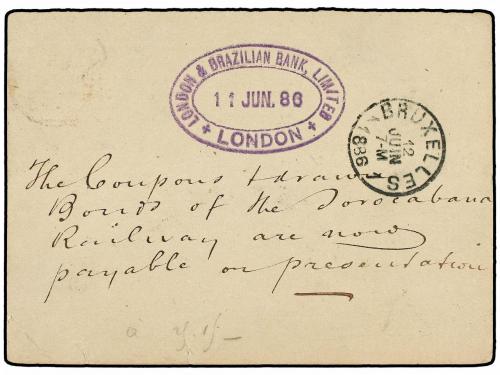 LONDON & BRAZILIAN BANK, LIMITED
11 JUN. 86
+ LONDON +
BRUXELLES 1
12
JUIN
7-M
1886
The Coupons & drawn
Bonds of the Sorocabana
Railway are now
payable on presentation